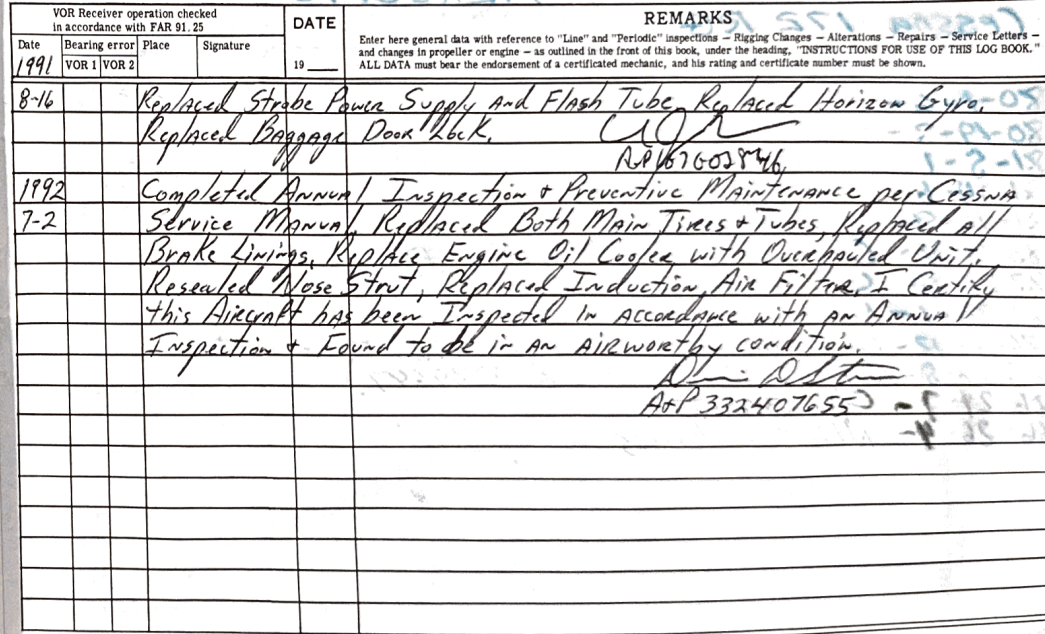 VOR Receiver operation checked
in accordance with FAR 91.25
DATE
19
REMARKS
Enter here general data with reference to "Line" and "Periodic" inspections – Rigging Changes – Alterations – Repairs – Service Letters –
and changes in propeller or engine – as outlined in the front of this book, under the heading, "INSTRUCTIONS FOR USE OF THIS LOG BOOK."
ALL DATA must bear the endorsement of a certificated mechanic, and his rating and certificate number must be shown.
Date Bearing error Place Signature
1991 VOR 1 VOR 2
8-16 Replaced Strobe Power Supply And Flash Tube, Replaced Horizon Gyro,
Replaced Baggage Door Lock.
1992 Completed Annual Inspection & Preventive Maintenance per Cessna
7-2 Service Manual, Replaced Both Main Tires & Tubes, Replaced All
Brake Linings, Replace Engine Oil Cooler with Overhauled Unit,
Resealed Nose Strut, Replaced Induction Air Filter, I Certify
this Aircraft has been Inspected In Accordance with An Annual
Inspection & Found to be in An Airworthy condition.
A&P 332407655